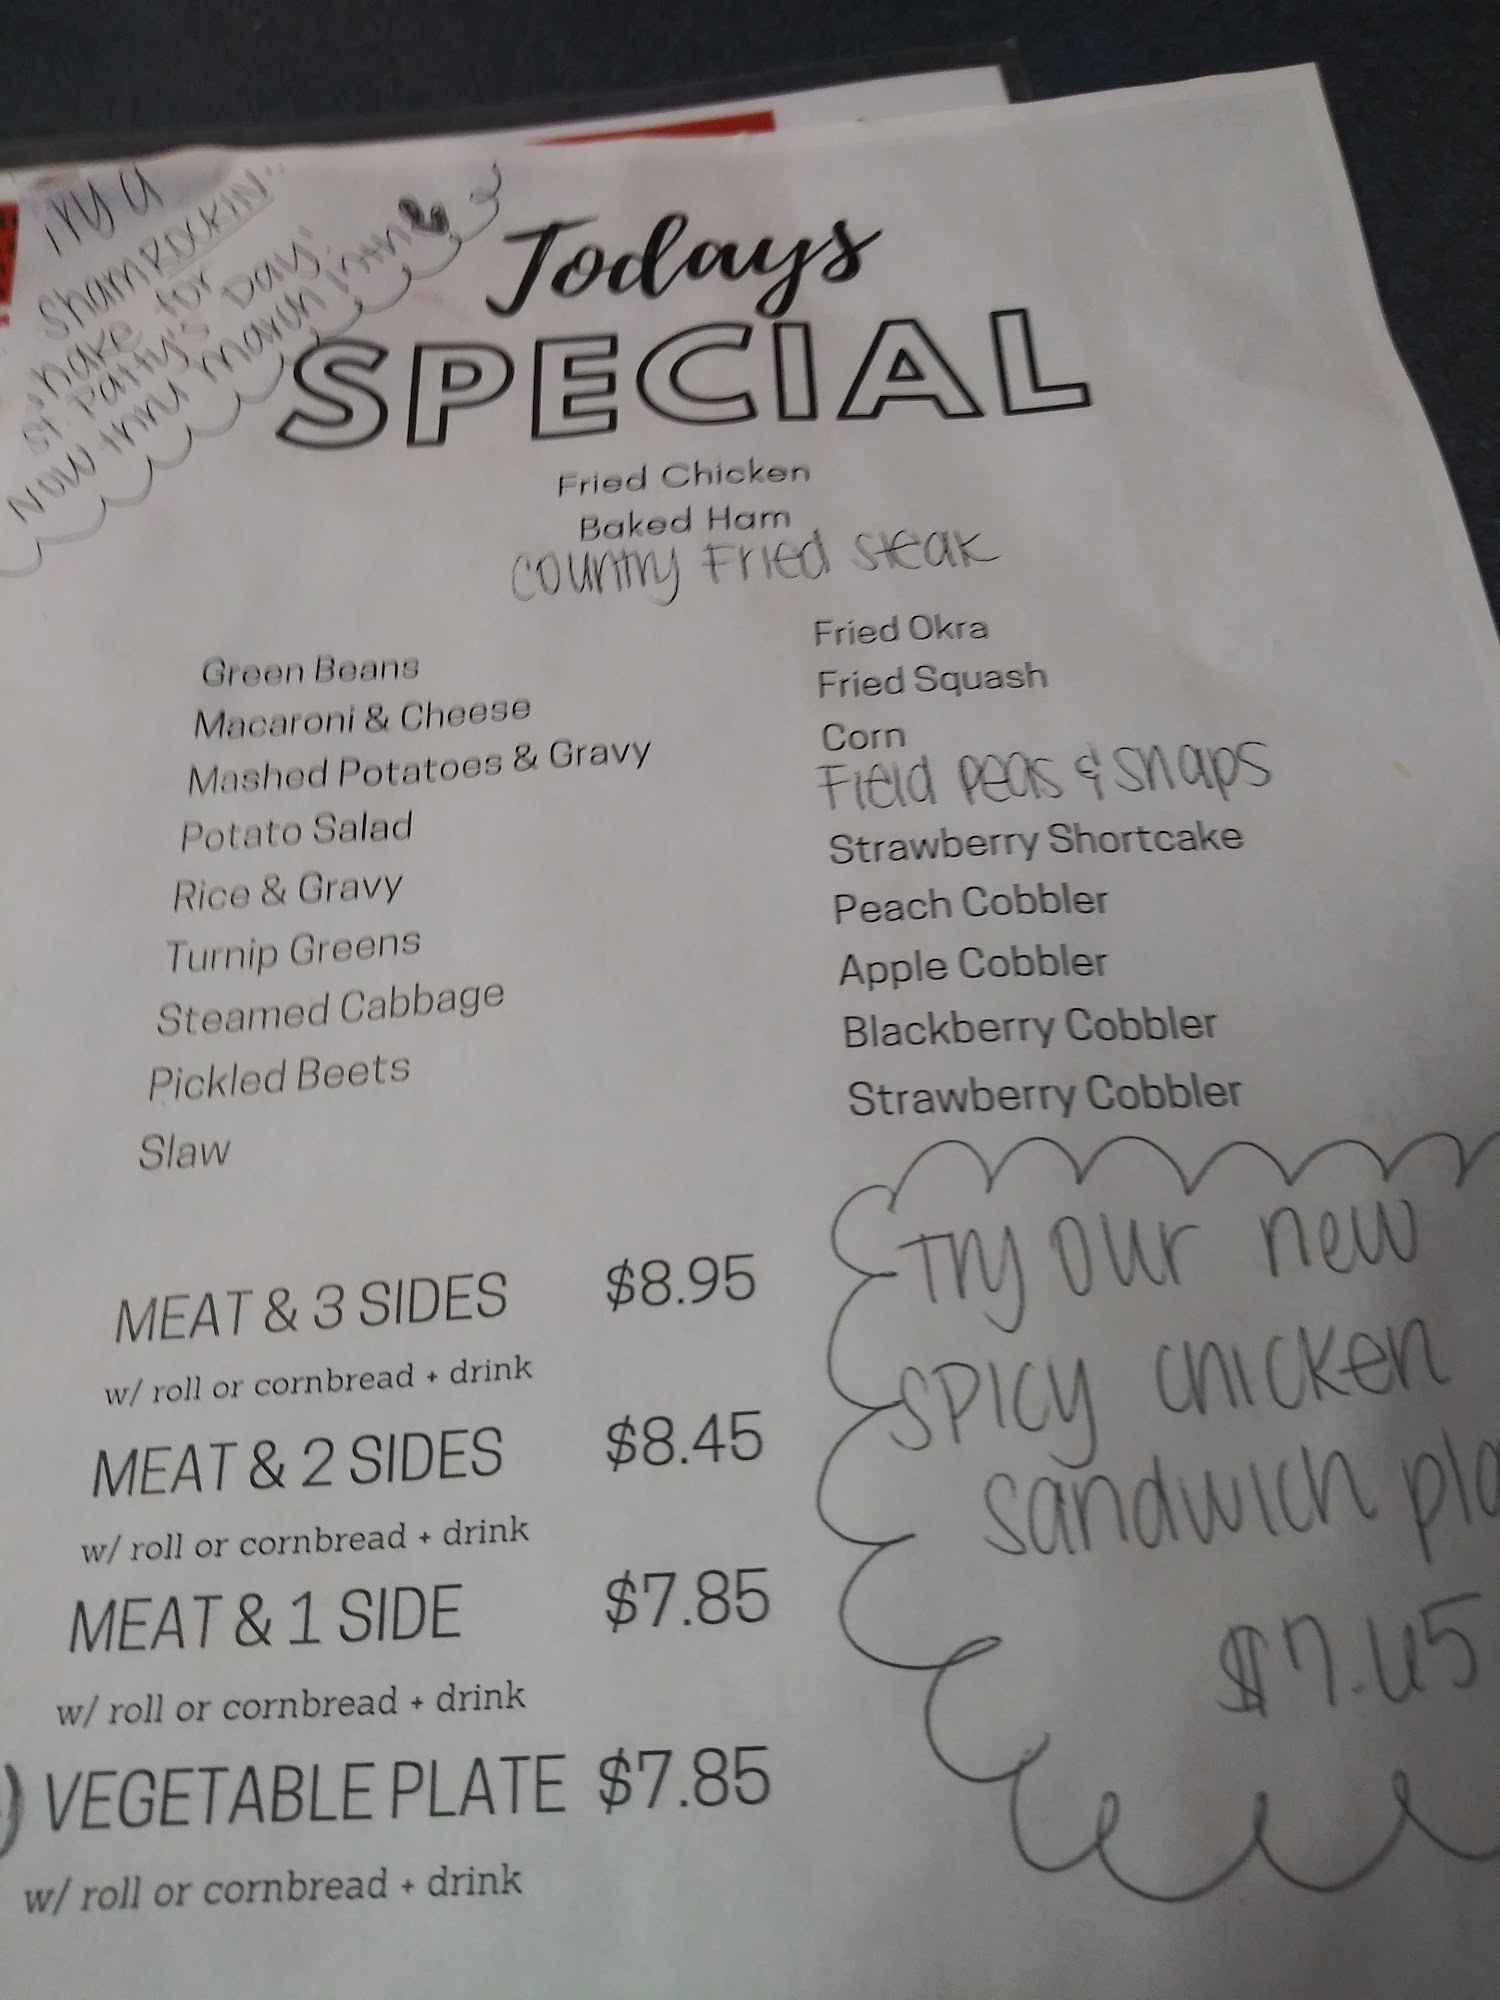 Try a
ShamROCKIN'
Shake for
St. Patty's Day!
Now thru March 17th
Todays
SPECIAL
Fried Chicken
Baked Ham
Country Fried Steak
Green Beans
Macaroni & Cheese
Mashed Potatoes & Gravy
Potato Salad
Rice & Gravy
Turnip Greens
Steamed Cabbage
Pickled Beets
Slaw
Fried Okra
Fried Squash
Corn
Field peas & snaps
Strawberry Shortcake
Peach Cobbler
Apple Cobbler
Blackberry Cobbler
Strawberry Cobbler
MEAT & 3 SIDES $8.95
w/ roll or cornbread + drink
MEAT & 2 SIDES $8.45
w/ roll or cornbread + drink
MEAT & 1 SIDE $7.85
w/ roll or cornbread + drink
VEGETABLE PLATE $7.85
w/ roll or cornbread + drink
Try our new
spicy chicken
sandwich
$7.65